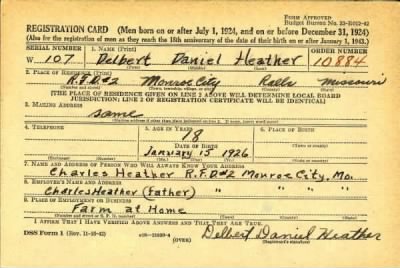 FORM APPROVED
Budget Bureau No. 33-R012-42
REGISTRATION CARD (Men born on or after July 1, 1924, and on or before December 31, 1924)
(Also for the registration of men as they reach the 18th anniversary of the date of their birth on or after January 1, 1943.)
SERIAL NUMBER 1. NAME (Print) ORDER NUMBER
W 107 Delbert Daniel Heather 10884
(First) (Middle) (Last)
2. PLACE OF RESIDENCE (Print)
R.F.D#2 Monroe City Ralls Missouri
(Number and street) (Town, township, village, or city) (County) (State)
[THE PLACE OF RESIDENCE GIVEN ON LINE 2 ABOVE WILL DETERMINE LOCAL BOARD
JURISDICTION; LINE 2 OF REGISTRATION CERTIFICATE WILL BE IDENTICAL]
3. MAILING ADDRESS
same
4. TELEPHONE 5. AGE IN YEARS 6. PLACE OF BIRTH
18
DATE OF BIRTH
January 15 1926
7. NAME AND ADDRESS OF PERSON WHO WILL ALWAYS KNOW YOUR ADDRESS
Charles Heather R.F.D#2 Monroe City, Mo.
8. EMPLOYER'S NAME AND ADDRESS
Charles Heather (Father) " " "
9. PLACE OF EMPLOYMENT OR BUSINESS
Farm at Home
I AFFIRM THAT I HAVE VERIFIED ABOVE ANSWERS AND THAT THEY ARE TRUE.
DSS Form 1 (Rev. 11-16-42) (OVER) Delbert Daniel Heather
(Registrant's signature)